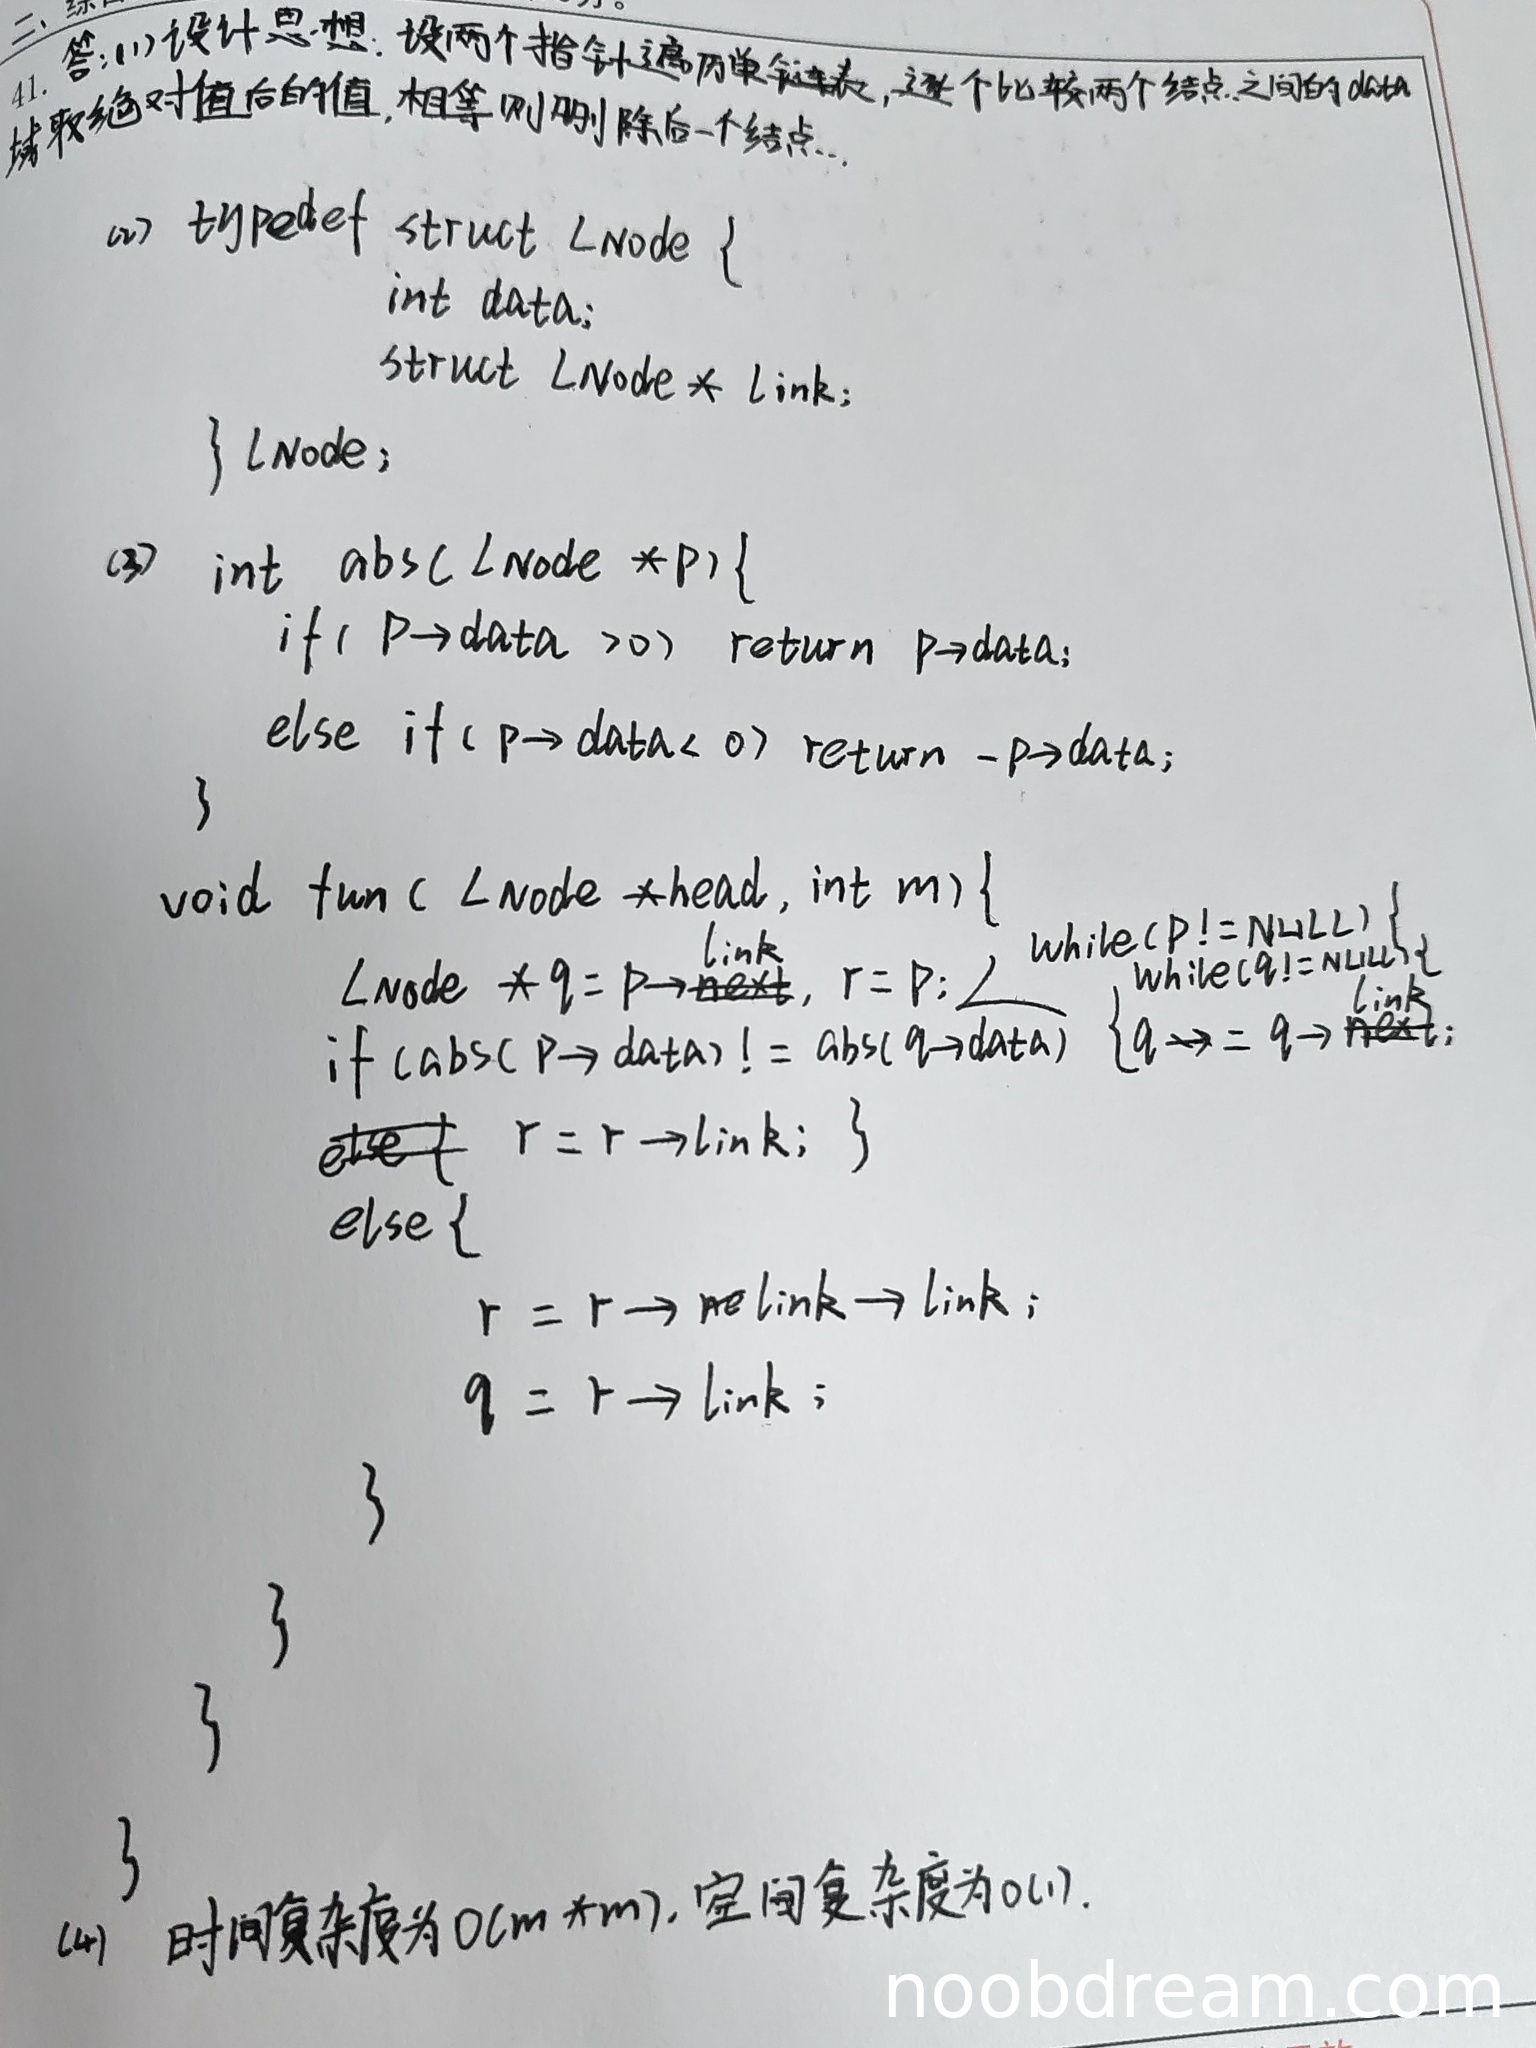 41. 答:(1)设计思想:设两个指针遍历单链表,逐个比较两个结点之间的data
域取绝对值后的值,相等则删除后一个结点...
(2) typedef struct LNode {
int data;
struct LNode* link;
} LNode;
(3) int abs(LNode *p){
if(p→data >0) return p→data;
else if(p→data<0) return -p→data;
}
void fun(LNode *head, int m){
LNode *q=p→link, r=p; while(p!=NULL){
while(q!=NULL){
if(abs(p→data)!=abs(q→data) {q = q→link;
r=r→link; }
else{
r = r→link→link;
q = r→link;
}
}
}
}
(4) 时间复杂度为O(m*m),空间复杂度为O(1).
noobdream.com